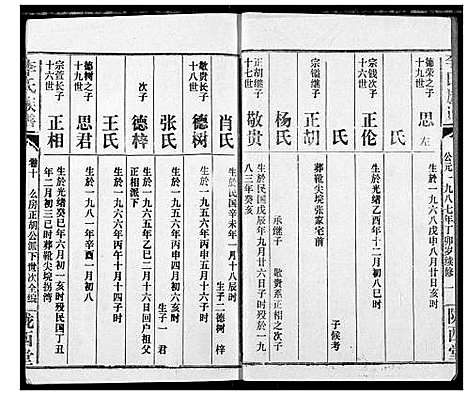 李氏族谱
公元一九八七年丁卯岁续修
一
陇西堂
德荣之子
十九世
思
左
生於一九六八戊申八月廿日亥时
氏
宗钱次子
十六世
正伦
生於光绪乙酉年十二月初八亥时
氏
子候考
宗镒继子
正胡
葬靴尖垸张家宅前
杨氏
承继子
敬贵系正相之次子
正胡继子
十七世
敬贵
生於民国戊辰年九月廿六日亥时
八三年癸亥
肖氏
生於民国辛未年一月十八辰时
生子二德树
梓
敬贵长子
十八世
德树
生於一九五六年丙申五月十六子时
张氏
生於一九五六年丙申四月初六亥时
生子一
君
次子
德梓
生於一九六五年乙巳二月十六日回户祖父
正相派下
王氏
生於一九六六年丙午十月十四子时
德树之子
十九世
思君
生於一九八一年辛酉一月初八
宗萱长子
十六世
正相
生於光绪癸巳年六月初一亥时殁民国丁丑
年二月初三巳时葬靴尖垸拐湾
李氏族谱
卷十
么房正胡公派下世次全编
陇西堂